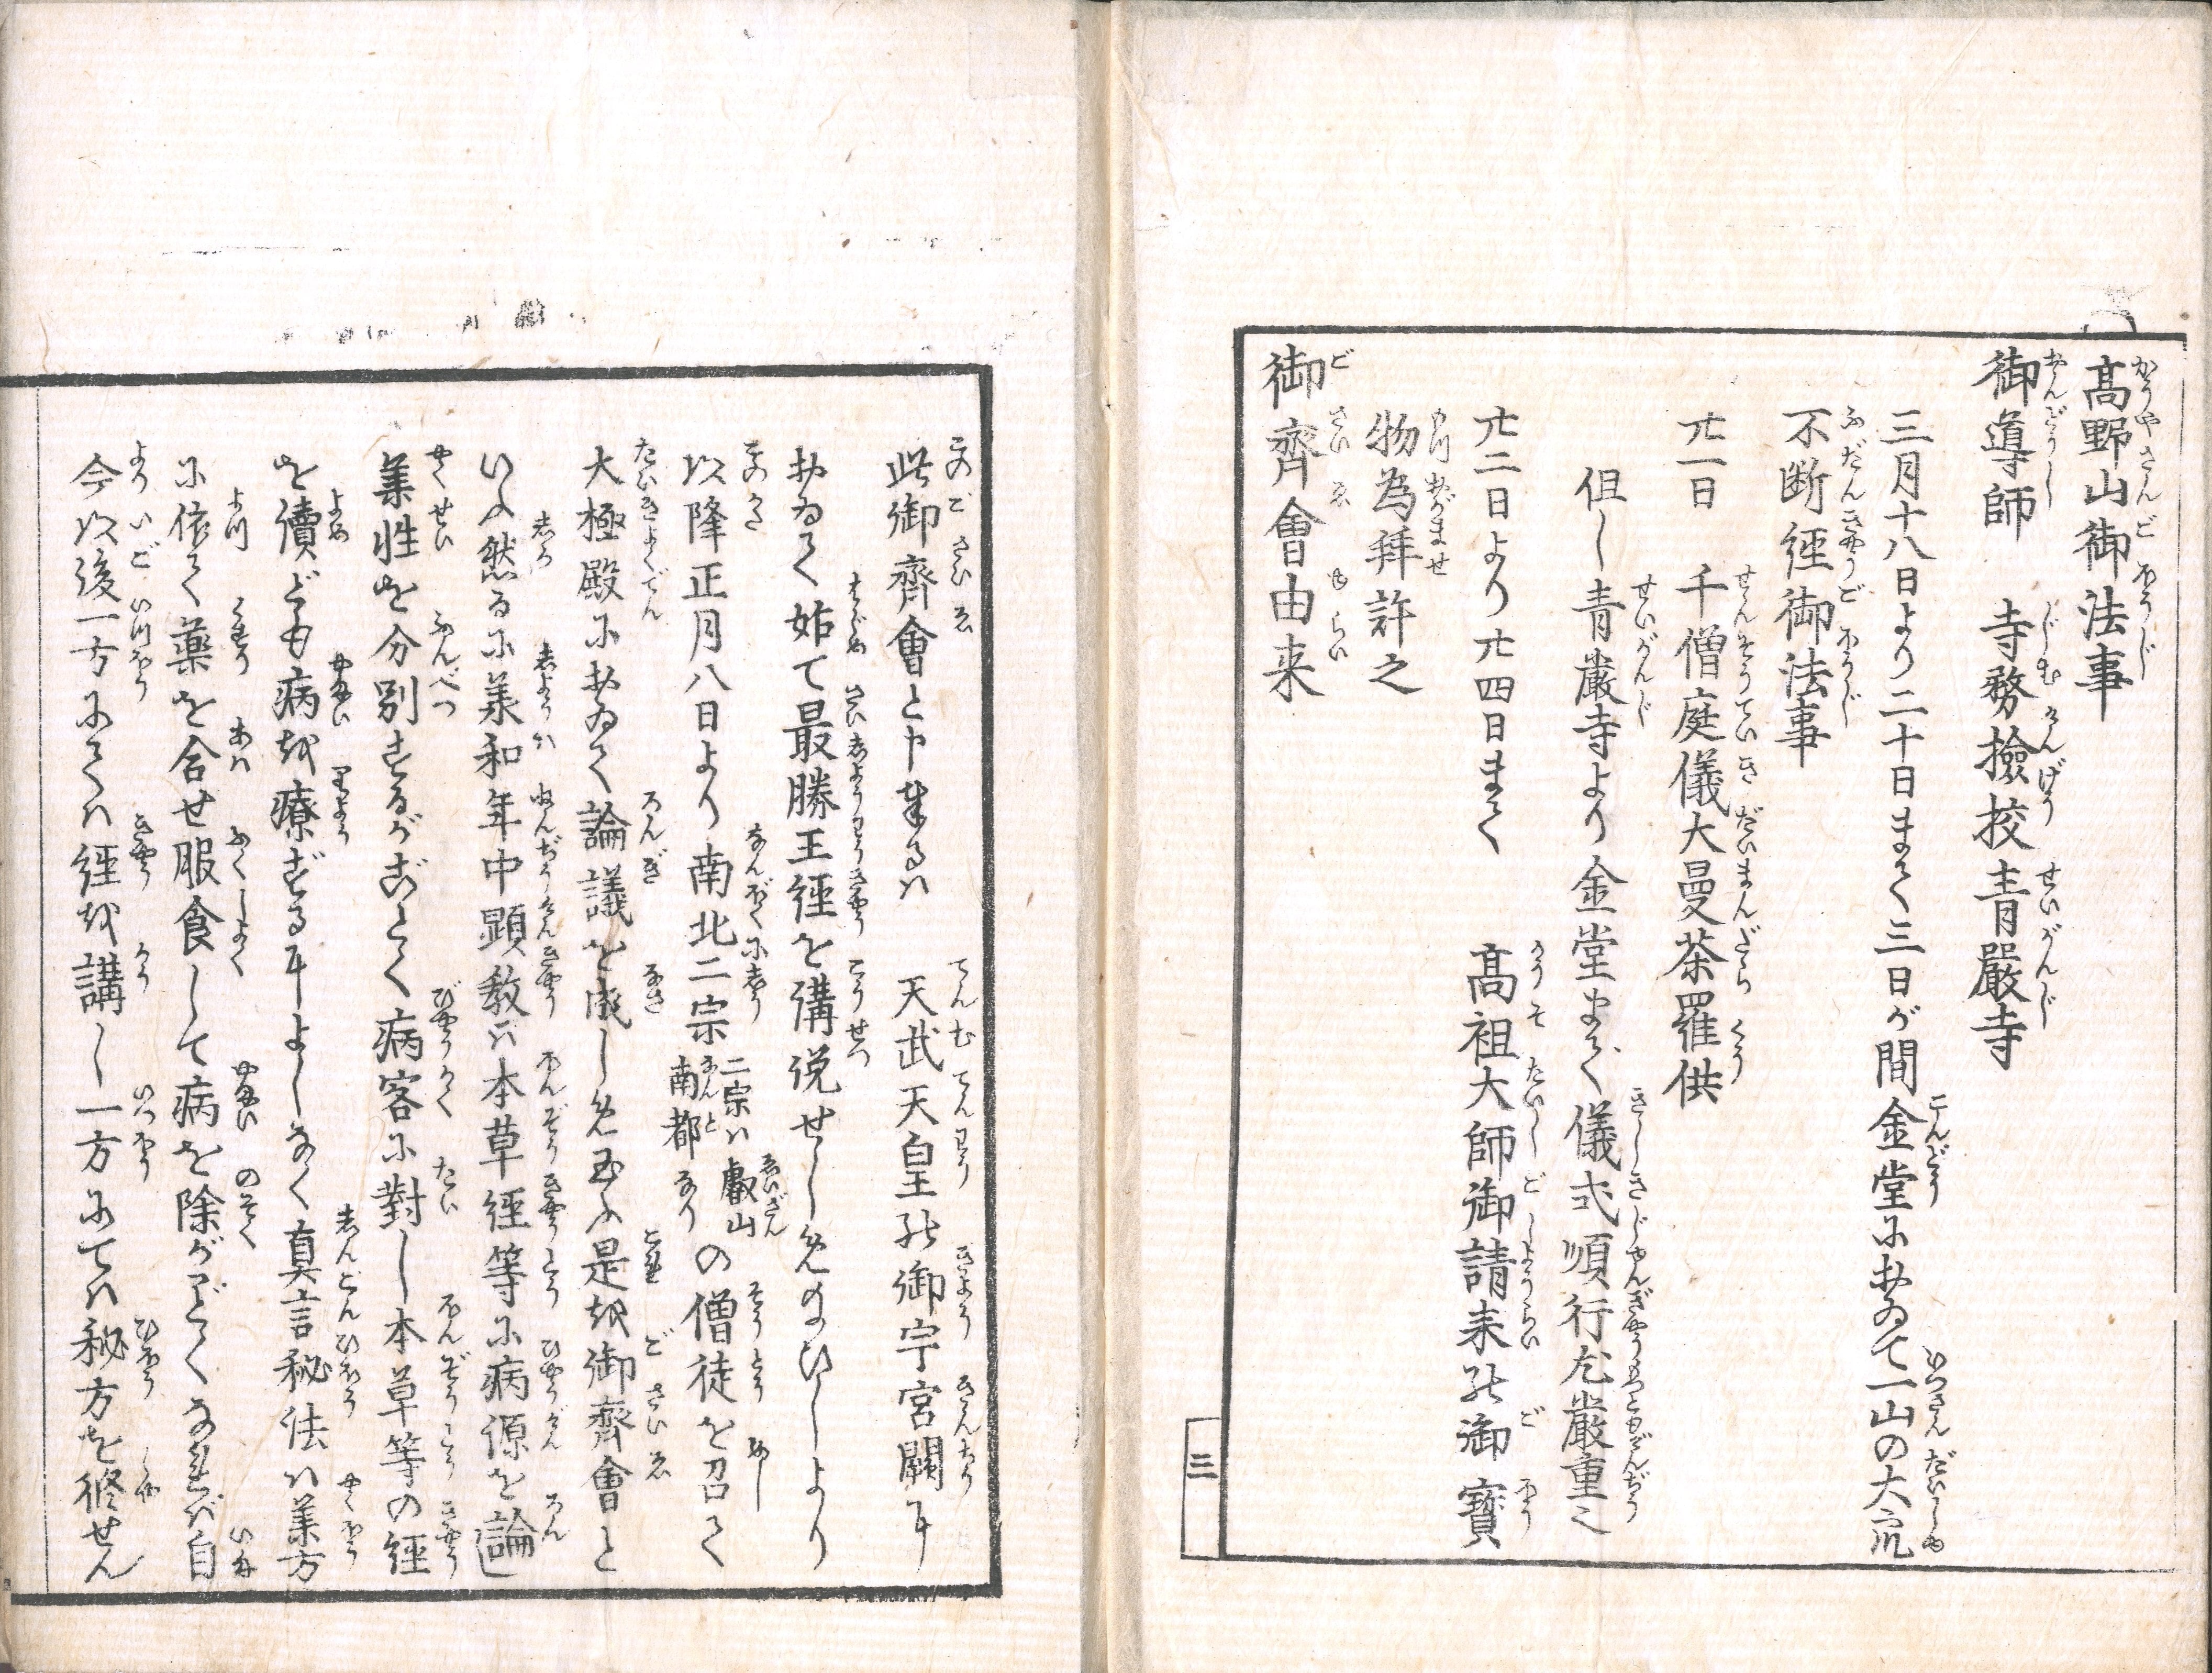 髙野山御法事
御導師　寺務撿挍青嚴寺
三月十八日より二十日まで三日が間金堂におゐて一山の大衆
不断經御法事
廿一日　千僧庭儀大曼荼羅供
但し青巖寺より金堂まで儀式順行尤嚴重之
廿二日より廿四日まで　髙祖大師御請来の御寳
物為拜許之
御齊會由来
三
此御齊會と申奉るハ　天武天皇の御宇宮闕に
おゐて始て最勝王經を講説せしめ給ひしより
以降正月八日より南北二宗二宗ハ叡山南都なりの僧徒を召て
大極殿におゐて論議を成しめ玉ふ是を御齊會と
いふ然るに羕和年中顕教ハ本草經等に病源を論し
藥性を分別するがごとく病客に對し本草等の經
を讀ども病を療するによしなく真言秘法ハ藥方
に依て藥を合せ服食して病を除がごとくなれバ自
今以後一方にてハ經を講し一方にてハ秘方を修せん